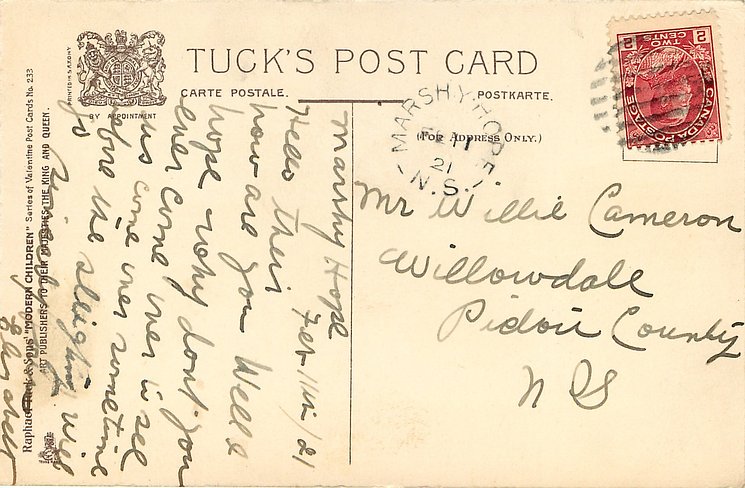 TUCK'S POST CARD
CARTE POSTALE.
POSTKARTE.
(FOR ADDRESS ONLY.)
BY APPOINTMENT
MARSHY HOPE
11
21
N.S.
2 TWO CENTS 2
CANADA POSTAGE
Mr Willie Cameron
Willowdale
Pictou County
N S
Marshy Hope
Feb 11th/21
Hello their
how are you Well I
hope why dont you
ever come over to see
us come over sometime
before the sleighing will
go
Raphael Tuck & Sons' "MODERN CHILDREN" Series of Valentine Post Cards No. 233
ART PUBLISHERS TO THEIR MAJESTIES THE KING AND QUEEN.